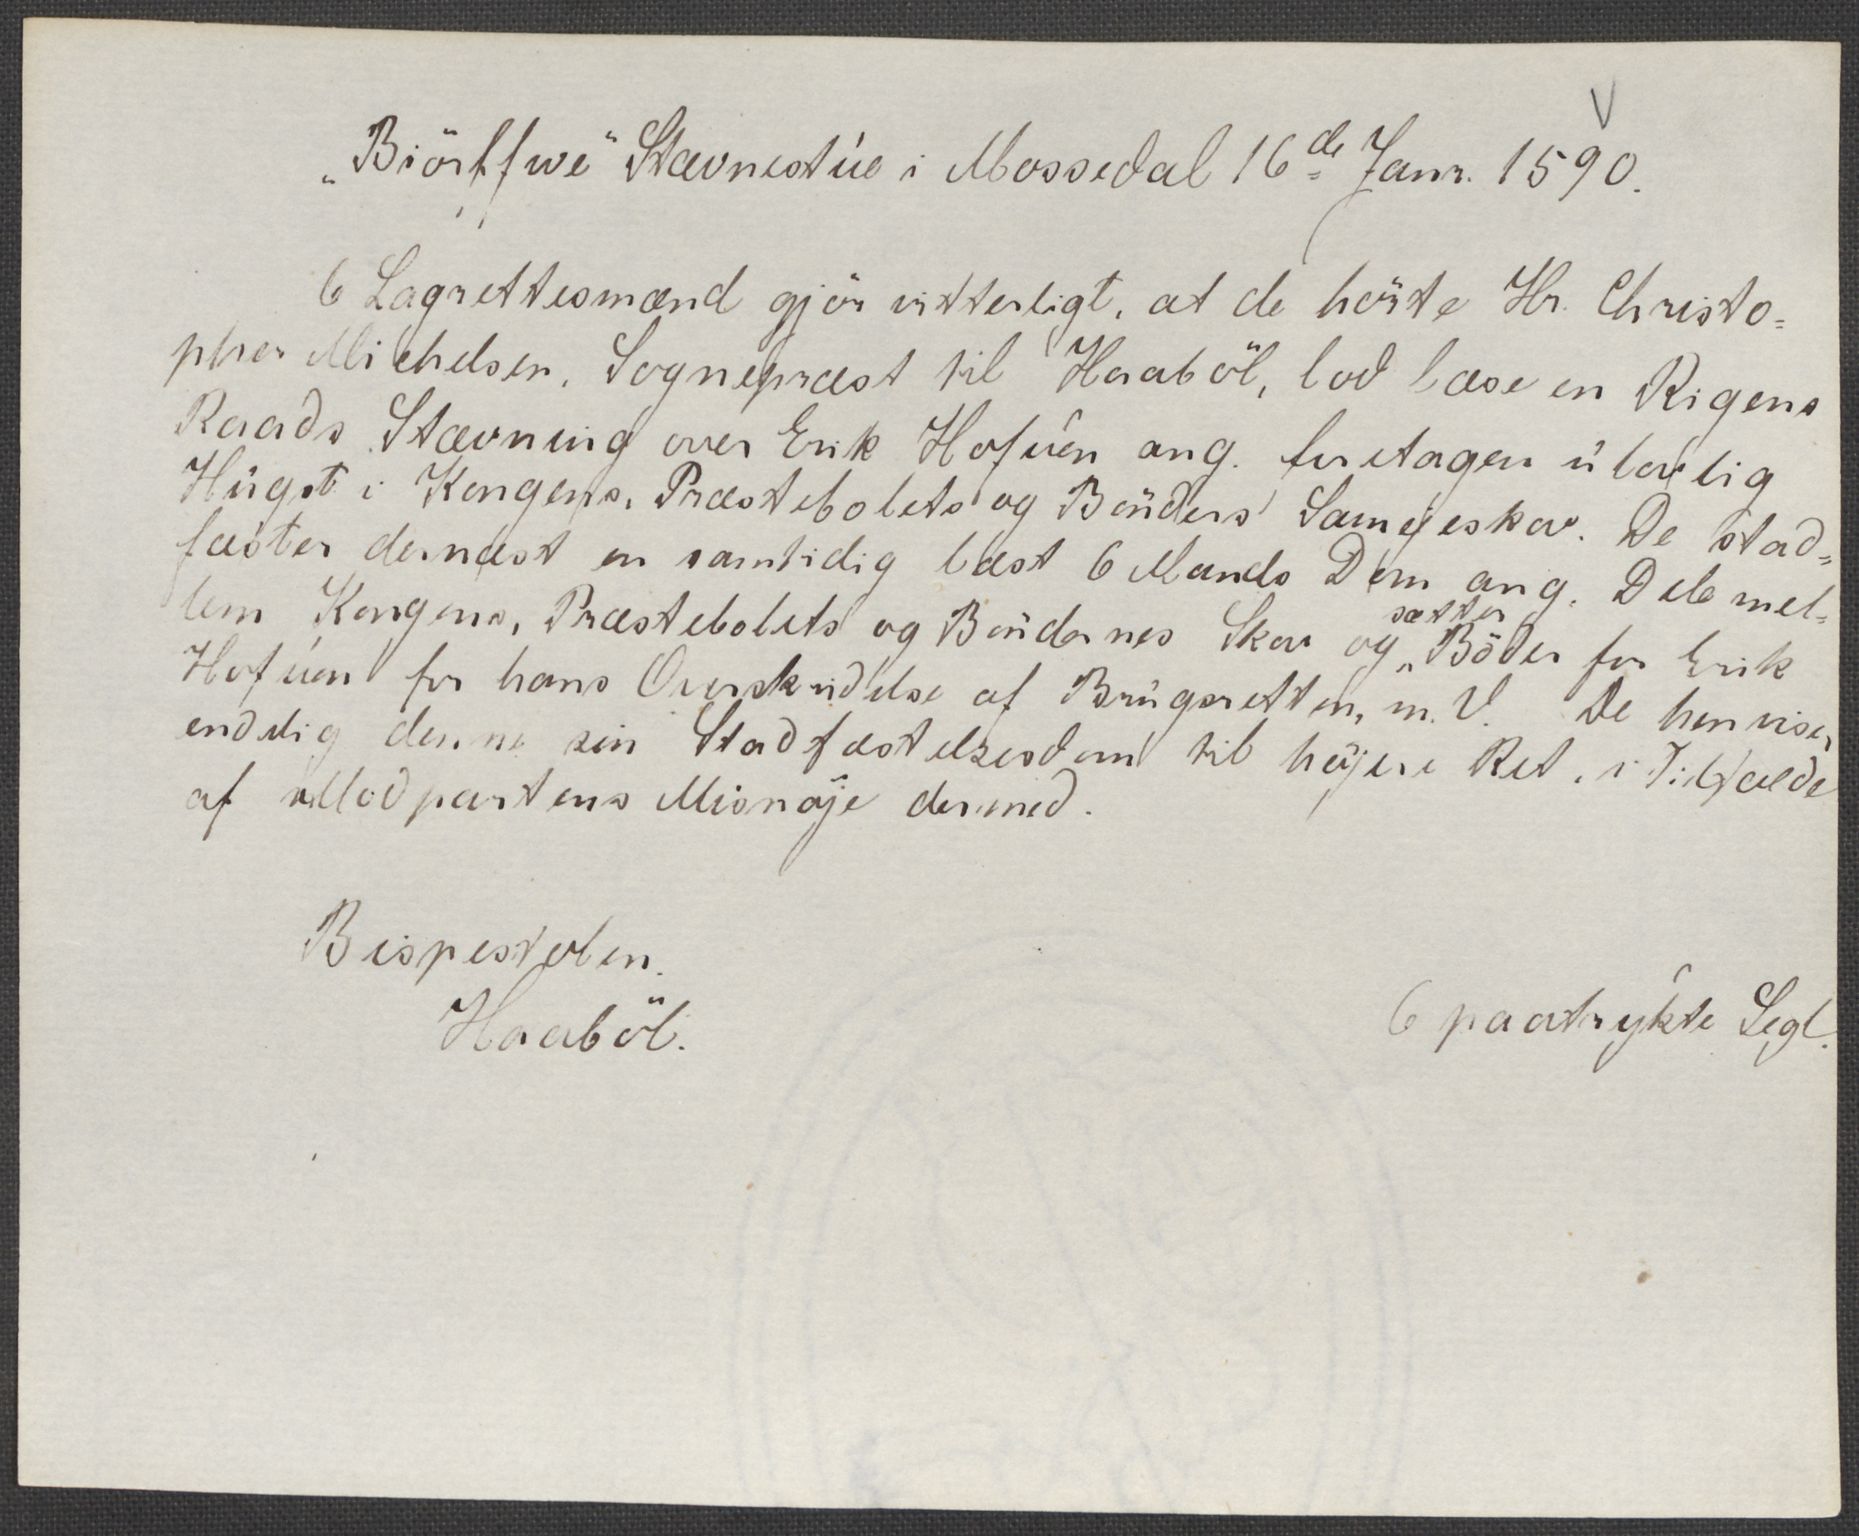 V
„Biörffwe“ Stævnestúe i Mossedal 16de Janr. 1590.
6 Lagrettesmænd gjör vitterligt, at de hörte Hr. Christo=
pher Michelsen, Sognepræst til Haaböl, lod læse en Rigens
Raads Stævning over Erik Hofúen ang. foretagen úlovlig
Húgst i Kongens, Præstebolets og Bönders Sameieskov. De stad=
fæster dernæst en samtidig læst 6 Mands Dom ang. Dele mel=
lem Kongens, Præstebolets og Böndernes Skov og sætter Böder for Erik
Hofúen for hans Overskridelse af Brúgsretten, m. V. De henviser
endelig denne sin Stadfæstelsesdom til höjere Ret, i Tilfælde
af Modpartens Misnöje dermed.
Bispestolen.
Haaböl.
6 paatrykte Segl.